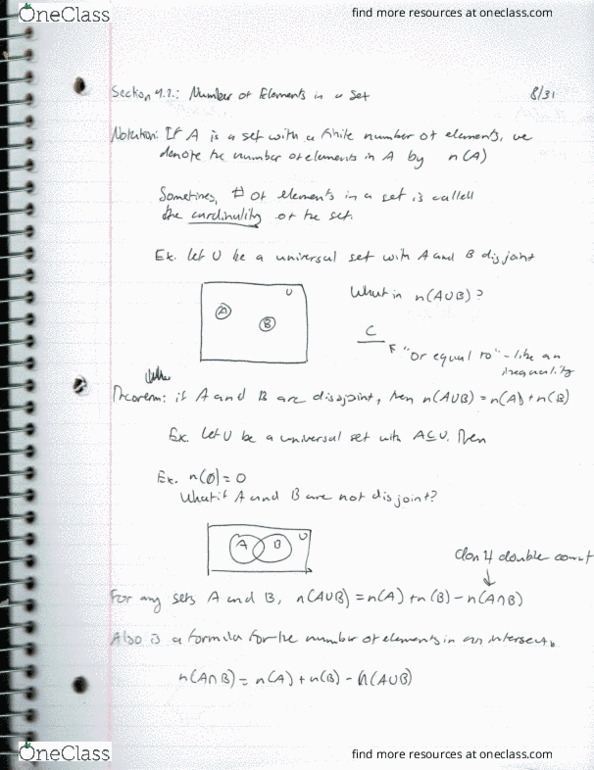 OneClass
find more resources at oneclass.com
Section 4.2.: Number of Elements in a Set 8/31
Notation: If A is a set with a finite number of elements, we
denote the number of elements in A by n(A)
Sometimes, # of elements in a set is called
the cardinality of the set.
Ex. let U be a universal set with A and B disjoint
U
A
B
What is n(A∪B)?
C
"or equal to" - like an
inequality
Theorem: if A and B are disjoint, then n(A∪B) = n(A) + n(B)
Ex. Let U be a universal set with A⊆U. Then
Ex. n(∅) = 0
What if A and B are not disjoint?
A B U
don't double count
For any sets A and B, n(A∪B) = n(A) + n(B) - n(A∩B)
Also is a formula for the number of elements in an intersect.
n(A∩B) = n(A) + n(B) - n(A∪B)
OneClass
find more resources at oneclass.com